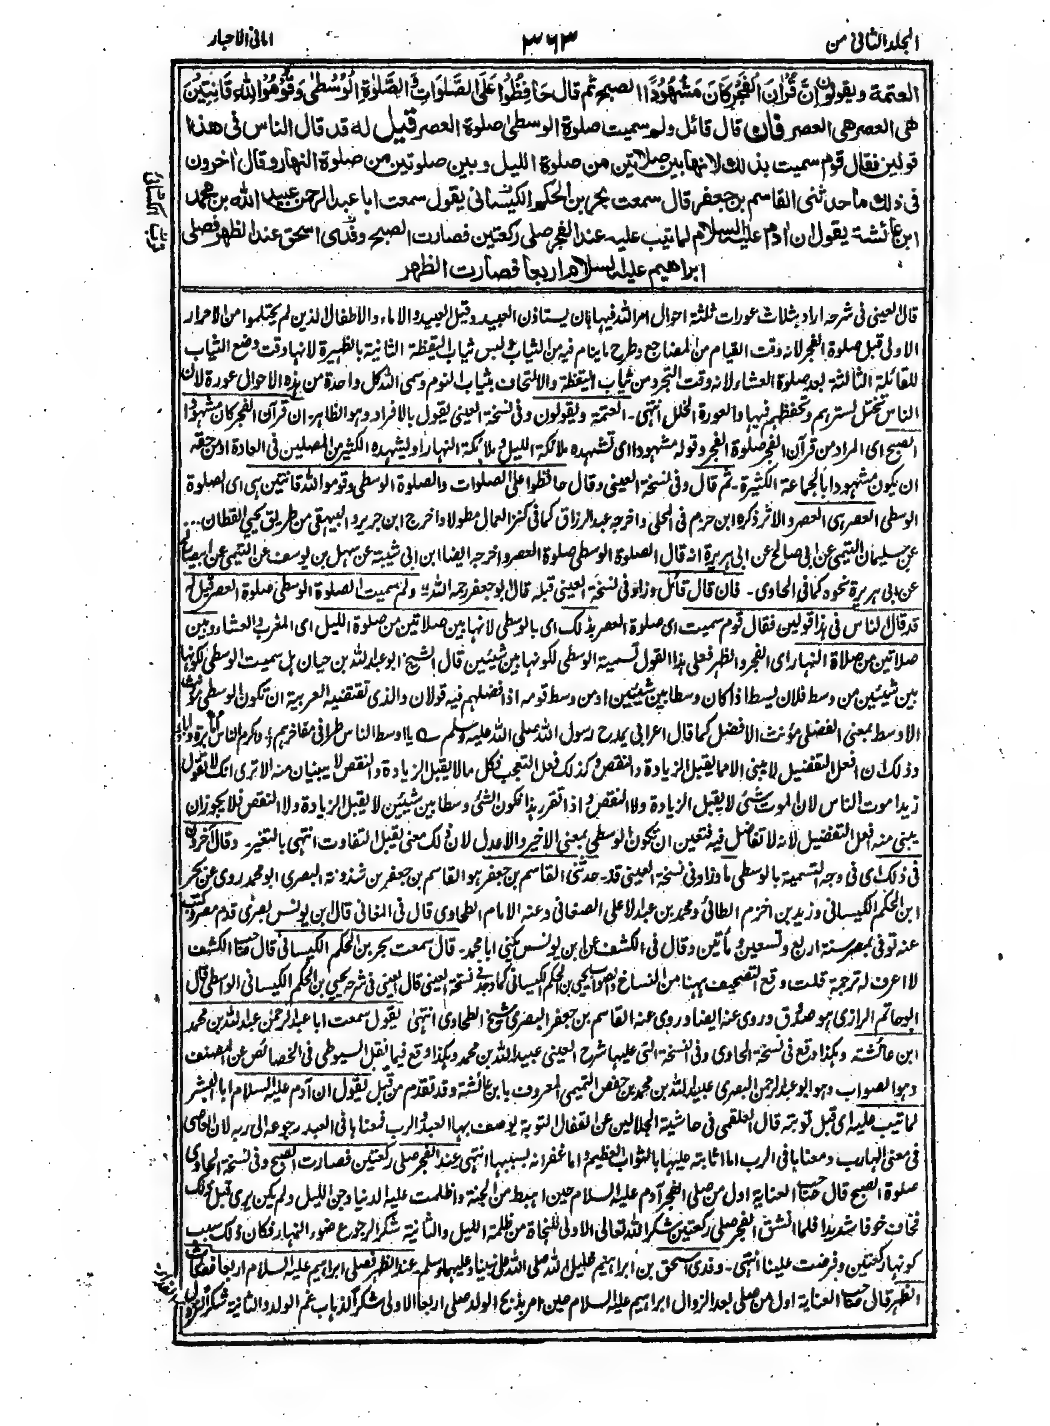 الجلد الثانى من
٣٦٣
امانى الاحبار
العتمة ويقولون إنَّ قُرْآنَ الْفَجْرِ كَانَ مَشْهُوْدًا الصبح ثم قال حَافِظُوْا عَلَى الصَّلَوَاتِ وَالصَّلٰوةِ الْوُسْطٰى وَقُوْمُوْا لِلّٰهِ قَانِتِيْنَ
هى العصر هى العصر فان قال قائل ولم سميت صلوة الوسطى صلوة العصر قيل له قد قال الناس فى هذا
قولين فقال قوم سميت بذلك لانها بين صلاتين من صلوة الليل وبين صلوتين من صلوة النهار وقال اخرون
فى ذلك ما حدثنى القاسم بن جعفر قال سمعت بحر بن الحكم الكيسانى يقول سمعت ابا عبد الرحمن عبيد الله بن محمد
ابن عائشة يقول ان ادم عليه السلام لما تيب عليه عند الفجر صلى ركعتين فصارت الصبح وفدى اسحق عند الظهر فصلى
ابراهيم عليه السلام اربعا فصارت الظهر
قال العينى فى شرحه اراد بثلاث عورات ثلثة احوال امر الله فيها ان يستاذن العبيد وقيل العبيد والاماء والاطفال الذين لم يحتلموا من الاحرار
الاولى قبل صلوة الفجر لانه وقت القيام من المضاجع وطرح ما ينام فيه من الثياب ولبس ثياب اليقظة الثانية بالظهيرة لانها وقت وضع الثياب
للقائلة الثالثة بعد صلوة العشاء لانه وقت التجرد من ثياب اليقظة والالتحاف بثياب النوم وسمى الله كل واحدة من هذه الاحوال عورة لان
الناس يختل تسترهم وتحفظهم فيها والعورة الخلل انتهى ـ العتمة ويقولون وفى نسخة العينى يقول بالافراد وهو الظاهر ـ ان قرآن الفجر كان مشهودا
الصبح اى المراد من قرآن الفجر صلوة الفجر وقوله مشهودا اى تشهده ملائكة الليل وملائكة النهار او ليشهده الكثير من المصلين فى العادة او من حقه
ان يكون مشهودا بالجماعة الكثيرة ـ ثم قال وفى نسخة العينى وقال حافظوا على الصلوات والصلوة الوسطى وقوموا لله قانتين هى اى الصلوة
الوسطى العصر هى العصر والاثر ذكره ابن حزم فى المحلى واخرجه عبد الرزاق كما فى كنز العمال مطولا واخرج ابن جرير والبيهقى من طريق يحيى القطان ...
عن سليمان التيمى عن ابى صالح عن ابى هريرة انه قال الصلوة الوسطى صلوة العصر واخرجه ايضا ابن ابى شيبة عن سهل بن يوسف عن التيمى عن ابى صالح
عن ابى هريرة نحوه كما فى الحاوى ـ فان قال قائل وزاد فى نسخة العينى قبله قال ابو جعفر رحمه الله ولم سميت الصلوة الوسطى صلوة العصر قيل له
قد قال الناس فى هذا قولين فقال قوم سميت اى صلوة العصر بذلك اى بالوسطى لانها بين صلاتين من صلوة الليل اى المغرب والعشاء وبين
صلاتين من صلاة النهار اى الفجر والظهر فعلى هذا القول تسمية الوسطى لكونها بين شيئين قال الشيخ ابو عبد الله بن حيان هل سميت الوسطى لكونها
بين شيئين من وسط فلان يسط اذا كان وسطا بين شيئين او من وسط قومه اذا فضلهم فيه قولان والذى تقتضيه العربية ان تكون الوسطى مؤنث
الاوسط بمعنى الفضلى مؤنث الافضل كما قال اعرابى يمدح رسول الله صلى الله عليه وسلم ـ يا اوسط الناس طرا فى مفاخرهم ؛ واكرم الناس اما برة وابا؛
وذلك ان افعل التفضيل لا يبنى الا مما يقبل الزيادة والنقص وكذلك فعل التعجب فكل ما لا يقبل الزيادة والنقص لا يبنيان منه الا ترى انك لا تقول
زيد اموت الناس لان الموت شئ لا يقبل الزيادة ولا النقص واذا تقرر هذا فكون الشئ وسطا بين شيئين لا يقبل الزيادة ولا النقص فلا يجوز ان
يبنى منه افعل التفضيل لانه لا تفاضل فيه فتعين ان تكون الوسطى بمعنى الاخير والاعدل لان ذلك معنى يقبل التفاوت انتهى بالتغير ـ وقال آخرون
فى ذلك اى فى وجه التسمية بالوسطى ما وزاد فى نسخة العينى قد ـ حدثنى القاسم بن جعفر هو القاسم بن جعفر بن شذونة البصرى ابو محمد روى عن بحر
ابن الحكم الكيسانى وزيد بن اخزم الطائى ومحمد بن عبد الاعلى الصنعانى وعنه الامام الطحاوى قال فى المغانى قال ابن يونس بصرى قدم مصر وكتب
عنه توفى بمصر سنة اربع وتسعين ومأتين وقال فى الكشف عن ابن يونس يكنى ابا محمد ـ قال سمعت بحر بن الحكم الكيسانى قال صاحب الكشف
لا اعرف له ترجمة قلت وقع التصحيف ههنا من النساخ والصواب يحيى بن الحكم الكيسانى كما وقع فى نسخة العينى قال العينى فى شرحه يحيى بن الحكم الكيسانى الواسطى قال
ابو حاتم الرازى هو صدوق وروى عنه ايضا وروى عنه القاسم بن جعفر البصرى شيخ الطحاوى انتهى يقول سمعت ابا عبد الرحمن عبد الله بن محمد
ابن عائشة وهكذا وقع فى نسخة الحاوى وفى النسخة التى عليها شرح العينى عبيد الله بن محمد وهكذا وقع فيما نقل السيوطى فى الخصائص عن المصنف
وهو الصواب وهو ابو عبد الرحمن البصرى عبيد الله بن محمد بن حفص التيمى المعروف بابن عائشة وقد تقدم من قبل يقول ان آدم عليه السلام ابا البشر
لما تيب عليه اى قبل توبته قال العلقمى فى حاشية الجلالين عن القفال التوبة يوصف بها العبد والرب فمعناها فى العبد رجوعه الى ربه لان العاصى
فى معنى الهارب ومعناها فى الرب اما اثابته عليها بالثواب العظيم واما غفرانه بسببها انتهى عند الفجر صلى ركعتين فصارت الصبح وفى نسخة الحاوى
صلوة الصبح قال صاحب العناية اول من صلى الفجر آدم عليه السلام حين اهبط من الجنة واظلمت عليه الدنيا وجن الليل ولم يكن يرى قبل ذلك
فخاف خوفا شديدا فلما انشق الفجر صلى ركعتين شكرا لله تعالى الاولى للنجاة من ظلمة الليل والثانية شكرا لرجوع ضوء النهار فكان ذلك سبب
كونها ركعتين وفرضت علينا انتهى ـ وفدى اسحق بن ابراهيم خليل الله صلى الله على نبينا وعليهما وسلم عند الظهر فصلى ابراهيم عليه السلام اربعا فصارت
الظهر قال صاحب العناية اول من صلى بعد الزوال ابراهيم عليه السلام حين امر بذبح الولد صلى اربعا الاولى شكرا لذهاب غم الولد والثانية شكرا لنزول